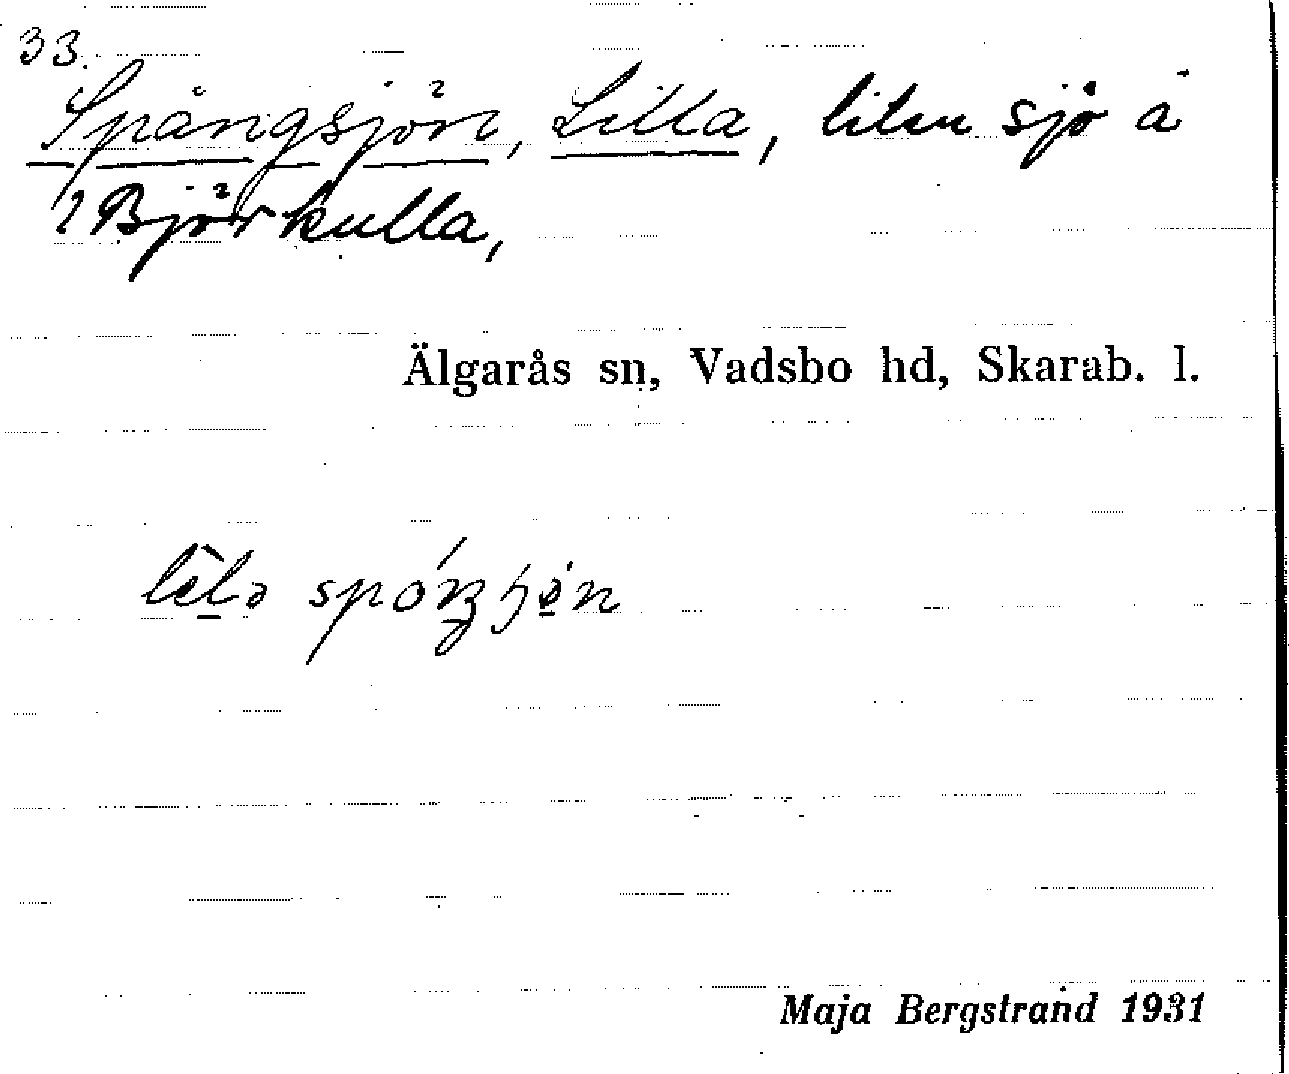 33.
Spångsjön, Lilla, liten sjö å
Björkulla,
Älgarås sn, Vadsbo hd, Skarab. l.
Maja Bergstrand 1931